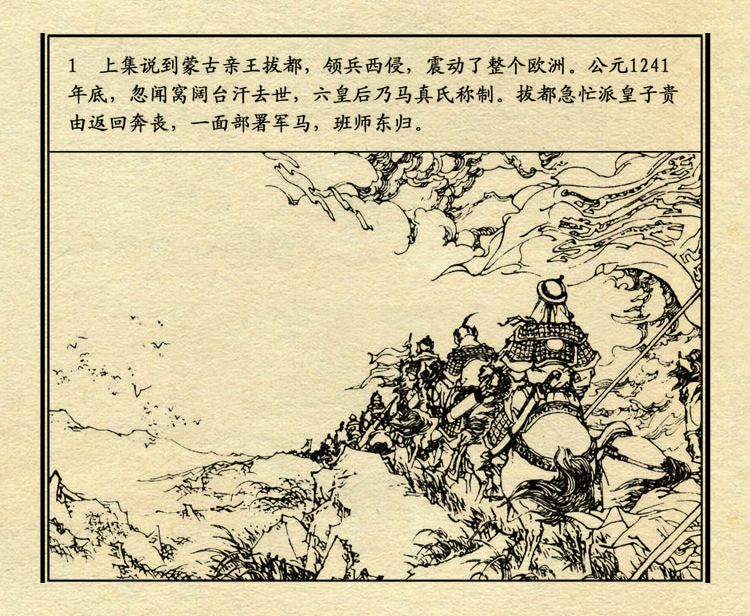 1 上集说到蒙古亲王拔都，领兵西侵，震动了整个欧洲。公元1241
年底，忽闻窝阔台汗去世，六皇后乃马真氏称制。拔都急忙派皇子贵
由返回奔丧，一面部署军马，班师东归。